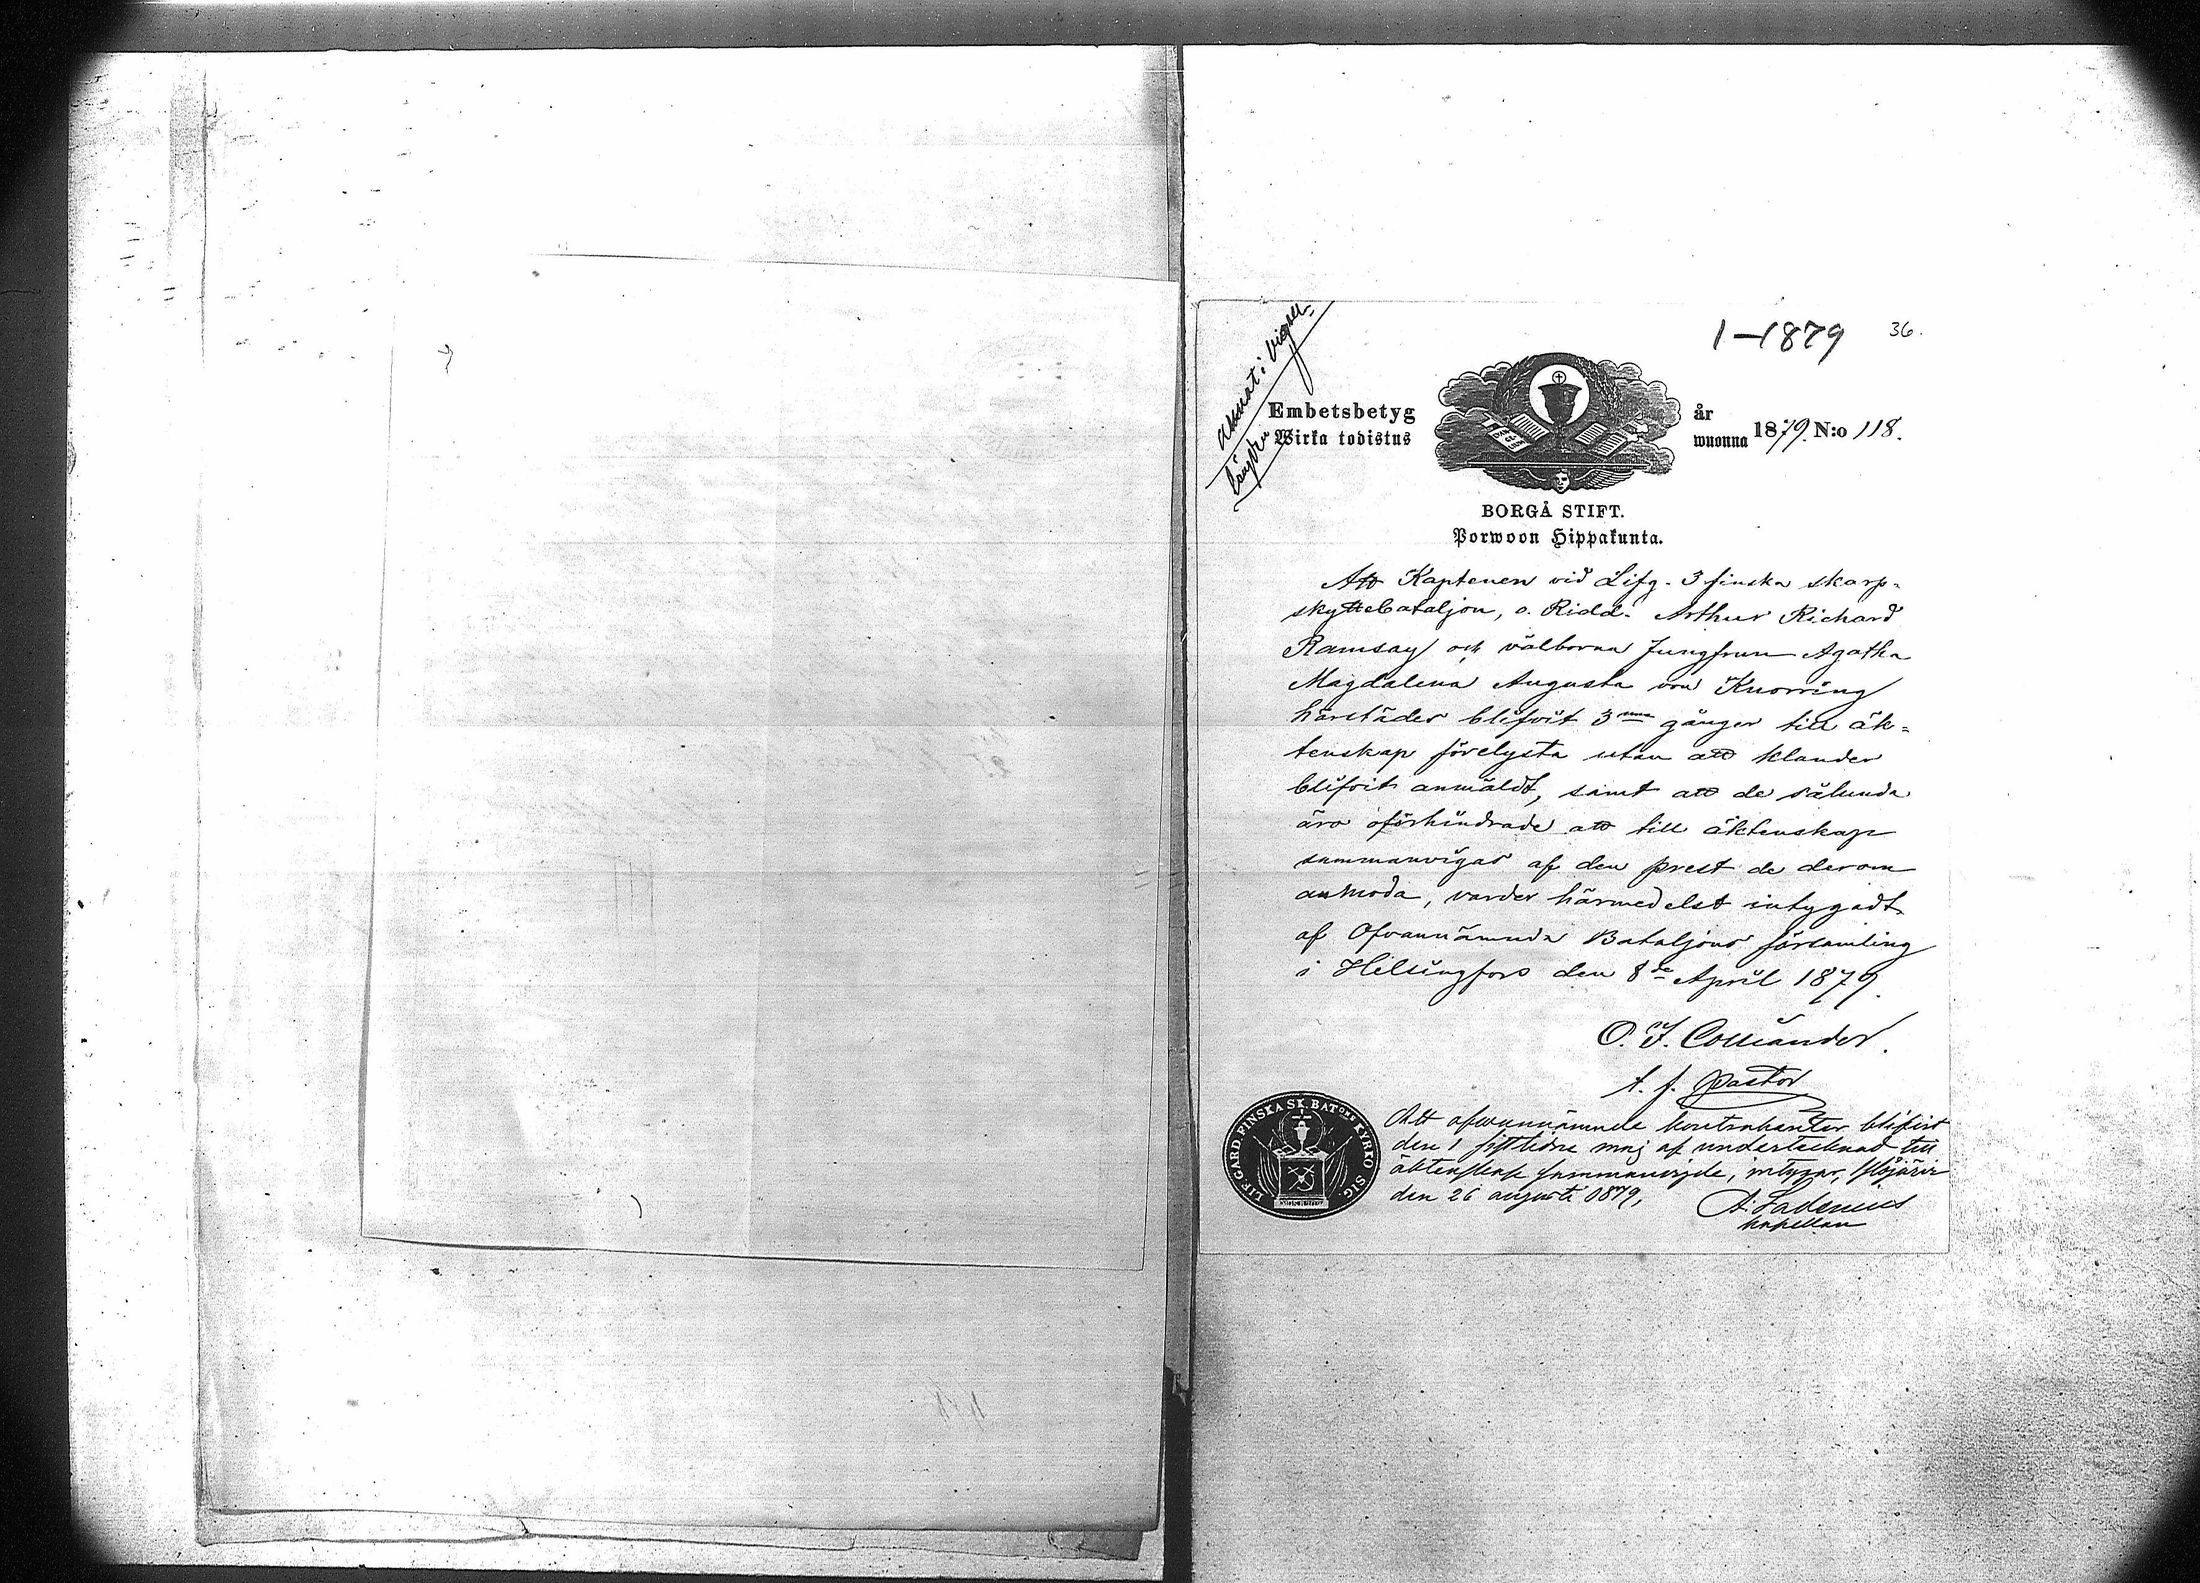 1–1879 36.
annat: vigsel-
längden
Embetsbetyg år
Wirka todistus wuonna 1879. N:o 118.
BORGÅ STIFT.
Porwoon Hippakunta.
Att Kaptenen vid Lifg. 3 finska skarp-
skyttebataljon, o. Ridd. Arthur Richard
Ramsay och välborna Jungfrun Agatha
Magdalena Augusta von Knorring
härstädes blifvit 3nne gånger till äk-
tenskap förelysta utan att klander
blifvit anmäldt, samt att de sålunda
äro oförhindrade att till äktenskap
sammanvigas af den prest de derom
anmoda, varder härmedelst intygadt.
af Ofvannämnda Bataljons församling
i Helsingfors den 8de April 1879.
O. F. Colliander.
t. f. Pastor
LIF. GARD. FINSKA SK. BATONS KYRKO SIG.
Att ofvannämnda kontrahenter blifvit
den 1 sistlidne maj af undertecknad till
äktenskap sammanvigde, intygar, Ylöjärvi
den 26 augusti 1879,
A. Ladenius
kapellan